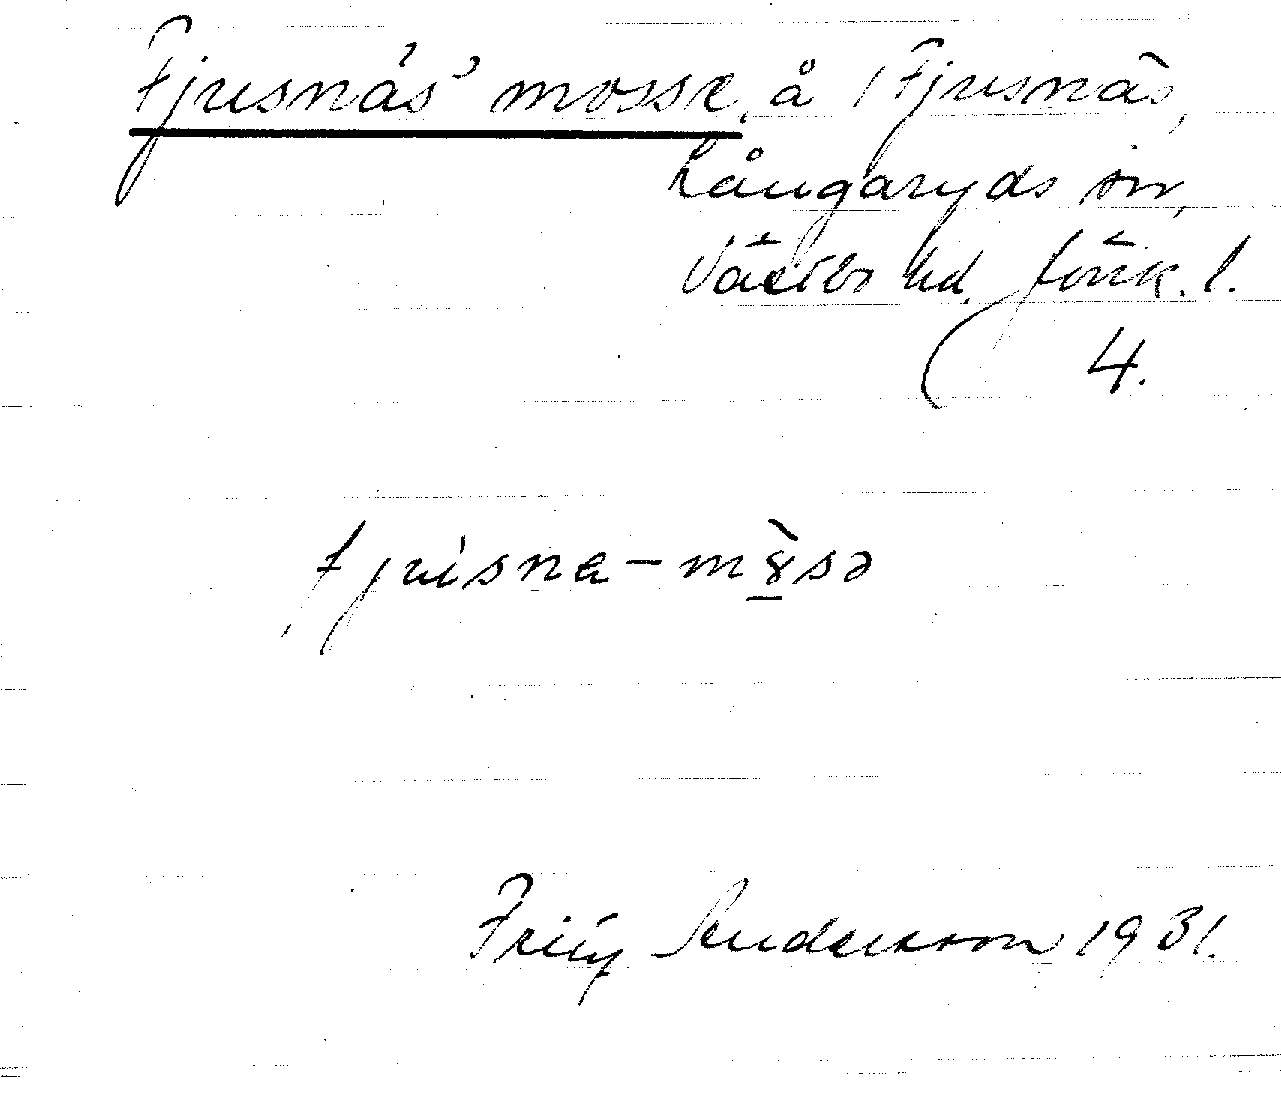 Fjusnäs' mosse, å 1 Fjusnäs,
Långaryds sn,
Västbo hd. Jönk. l.
4.
fjusna-mɤ̀sə
Fritz Andersson 1931.